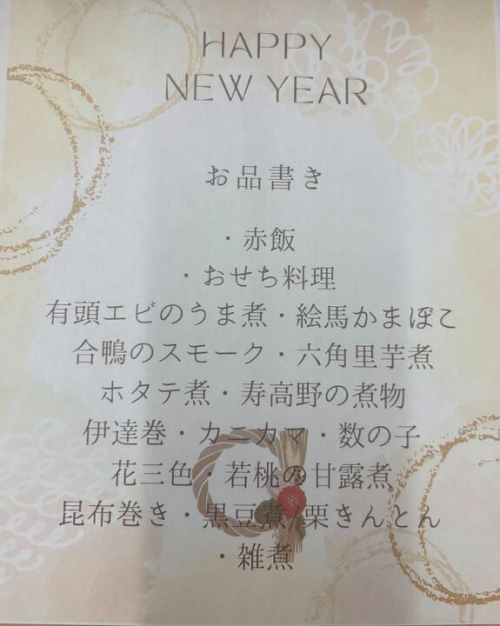 HAPPY
NEW YEAR
お品書き
・赤飯
・おせち料理
有頭エビのうま煮・絵馬かまぼこ
合鴨のスモーク・六角里芋煮
ホタテ煮・寿高野の煮物
伊達巻・カニカマ・数の子
花三色・若桃の甘露煮
昆布巻き・黒豆煮/栗きんとん
・雑煮